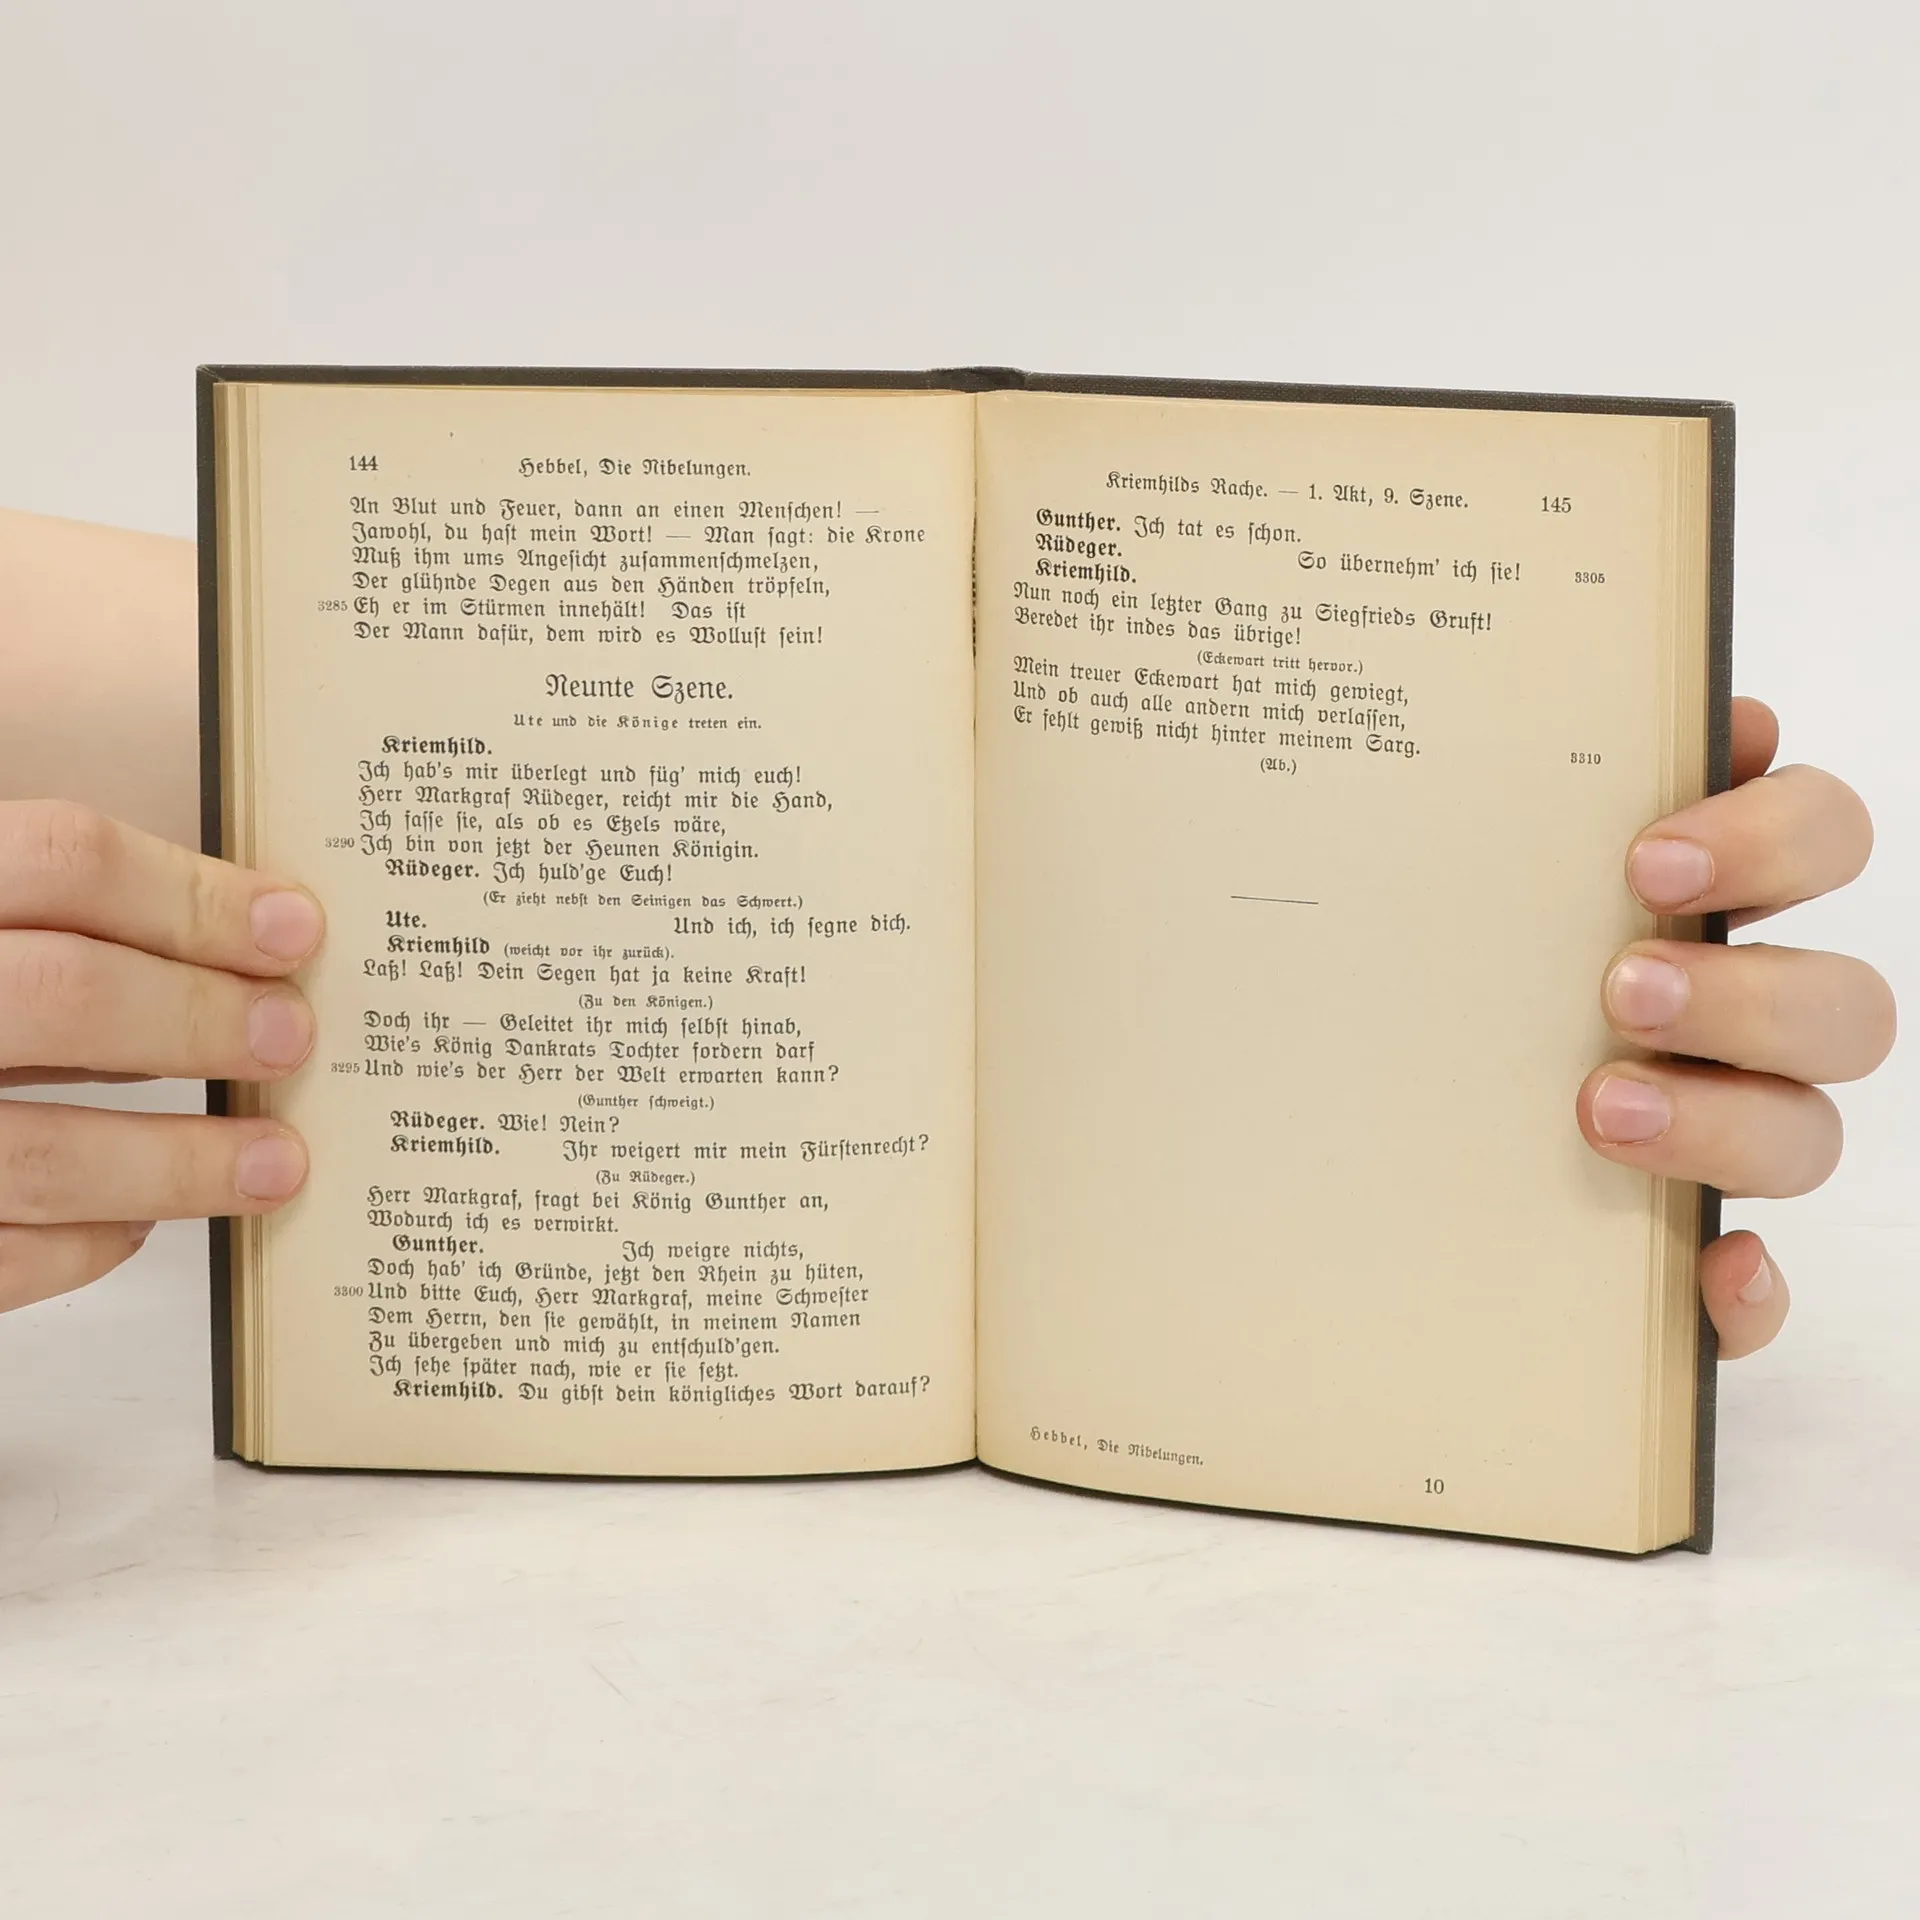 144 Hebbel, Die Nibelungen.
An Blut und Feuer, dann an einen Menſchen! —
Jawohl, du haſt mein Wort! — Man ſagt: die Krone
Muß ihm ums Angeſicht zuſammenſchmelzen,
Der glühnde Degen aus den Händen tröpfeln,
3285 Eh er im Stürmen innehält! Das iſt
Der Mann dafür, dem wird es Wolluſt ſein!
Neunte Szene.
Ute und die Könige treten ein.
Kriemhild.
Ich hab's mir überlegt und füg' mich euch!
Herr Markgraf Rüdeger, reicht mir die Hand,
Ich faſſe ſie, als ob es Etzels wäre,
3290 Ich bin von jetzt der Heunen Königin.
Rüdeger. Ich huld'ge Euch!
(Er zieht nebſt den Seinigen das Schwert.)
Ute. Und ich, ich ſegne dich.
Kriemhild (weicht vor ihr zurück).
Laß! Laß! Dein Segen hat ja keine Kraft!
(Zu den Königen.)
Doch ihr — Geleitet ihr mich ſelbſt hinab,
Wie's König Dankrats Tochter fordern darf
3295 Und wie's der Herr der Welt erwarten kann?
(Gunther ſchweigt.)
Rüdeger. Wie! Nein?
Kriemhild. Ihr weigert mir mein Fürſtenrecht?
(Zu Rüdeger.)
Herr Markgraf, fragt bei König Gunther an,
Wodurch ich es verwirkt.
Gunther. Ich weigre nichts,
Doch hab' ich Gründe, jetzt den Rhein zu hüten,
3300 Und bitte Euch, Herr Markgraf, meine Schweſter
Dem Herrn, den ſie gewählt, in meinem Namen
Zu übergeben und mich zu entſchuld'gen.
Ich ſehe ſpäter nach, wie er ſie ſetzt.
Kriemhild. Du gibſt dein königliches Wort darauf?
Kriemhilds Rache. — 1. Akt, 9. Szene. 145
Gunther. Ich tat es ſchon.
Rüdeger. So übernehm' ich ſie! 3305
Kriemhild.
Nun noch ein letzter Gang zu Siegfrieds Gruft!
Beredet ihr indes das übrige!
(Eckewart tritt hervor.)
Mein treuer Eckewart hat mich gewiegt,
Und ob auch alle andern mich verlaſſen,
Er fehlt gewiß nicht hinter meinem Sarg. 3310
(Ab.)
Hebbel, Die Nibelungen. 10